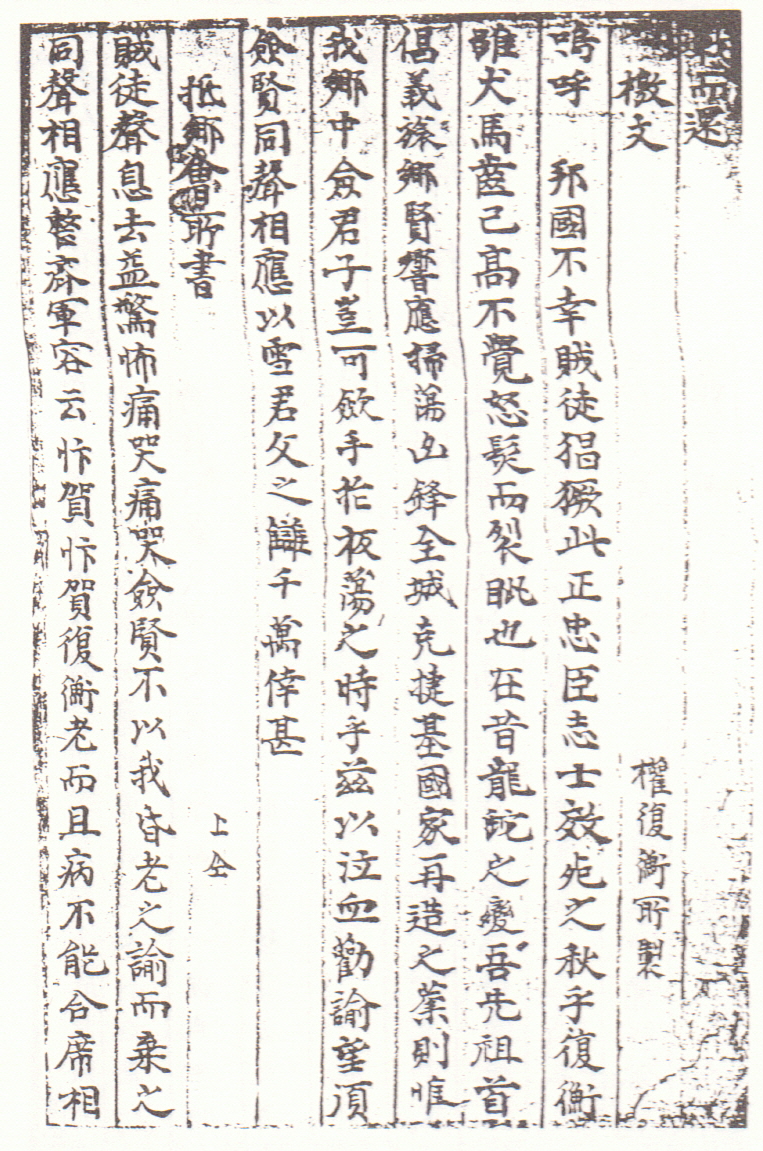 而還
檄文 權復衡所製
嗚呼 邦國不幸賊徒猖獗此正忠臣志士效死之秋乎復衡
雖犬馬齒已高不覺怒髮而裂眦也在昔龍蛇之變吾先祖首
倡義旅鄉賢響應掃蕩凶鋒全城克捷基國家再造之業則惟
我鄉中僉君子豈可斂手於板蕩之時乎玆以泣血勸諭望須
僉賢同聲相應以雪君父之讎千萬倖甚
抵鄉會所書 上仝
賊徒聲息去益驚怖痛哭痛哭僉賢不以我昏老之諭而棄之
同聲相應整齊軍容云忭賀忭賀復衡老而且病不能合席相